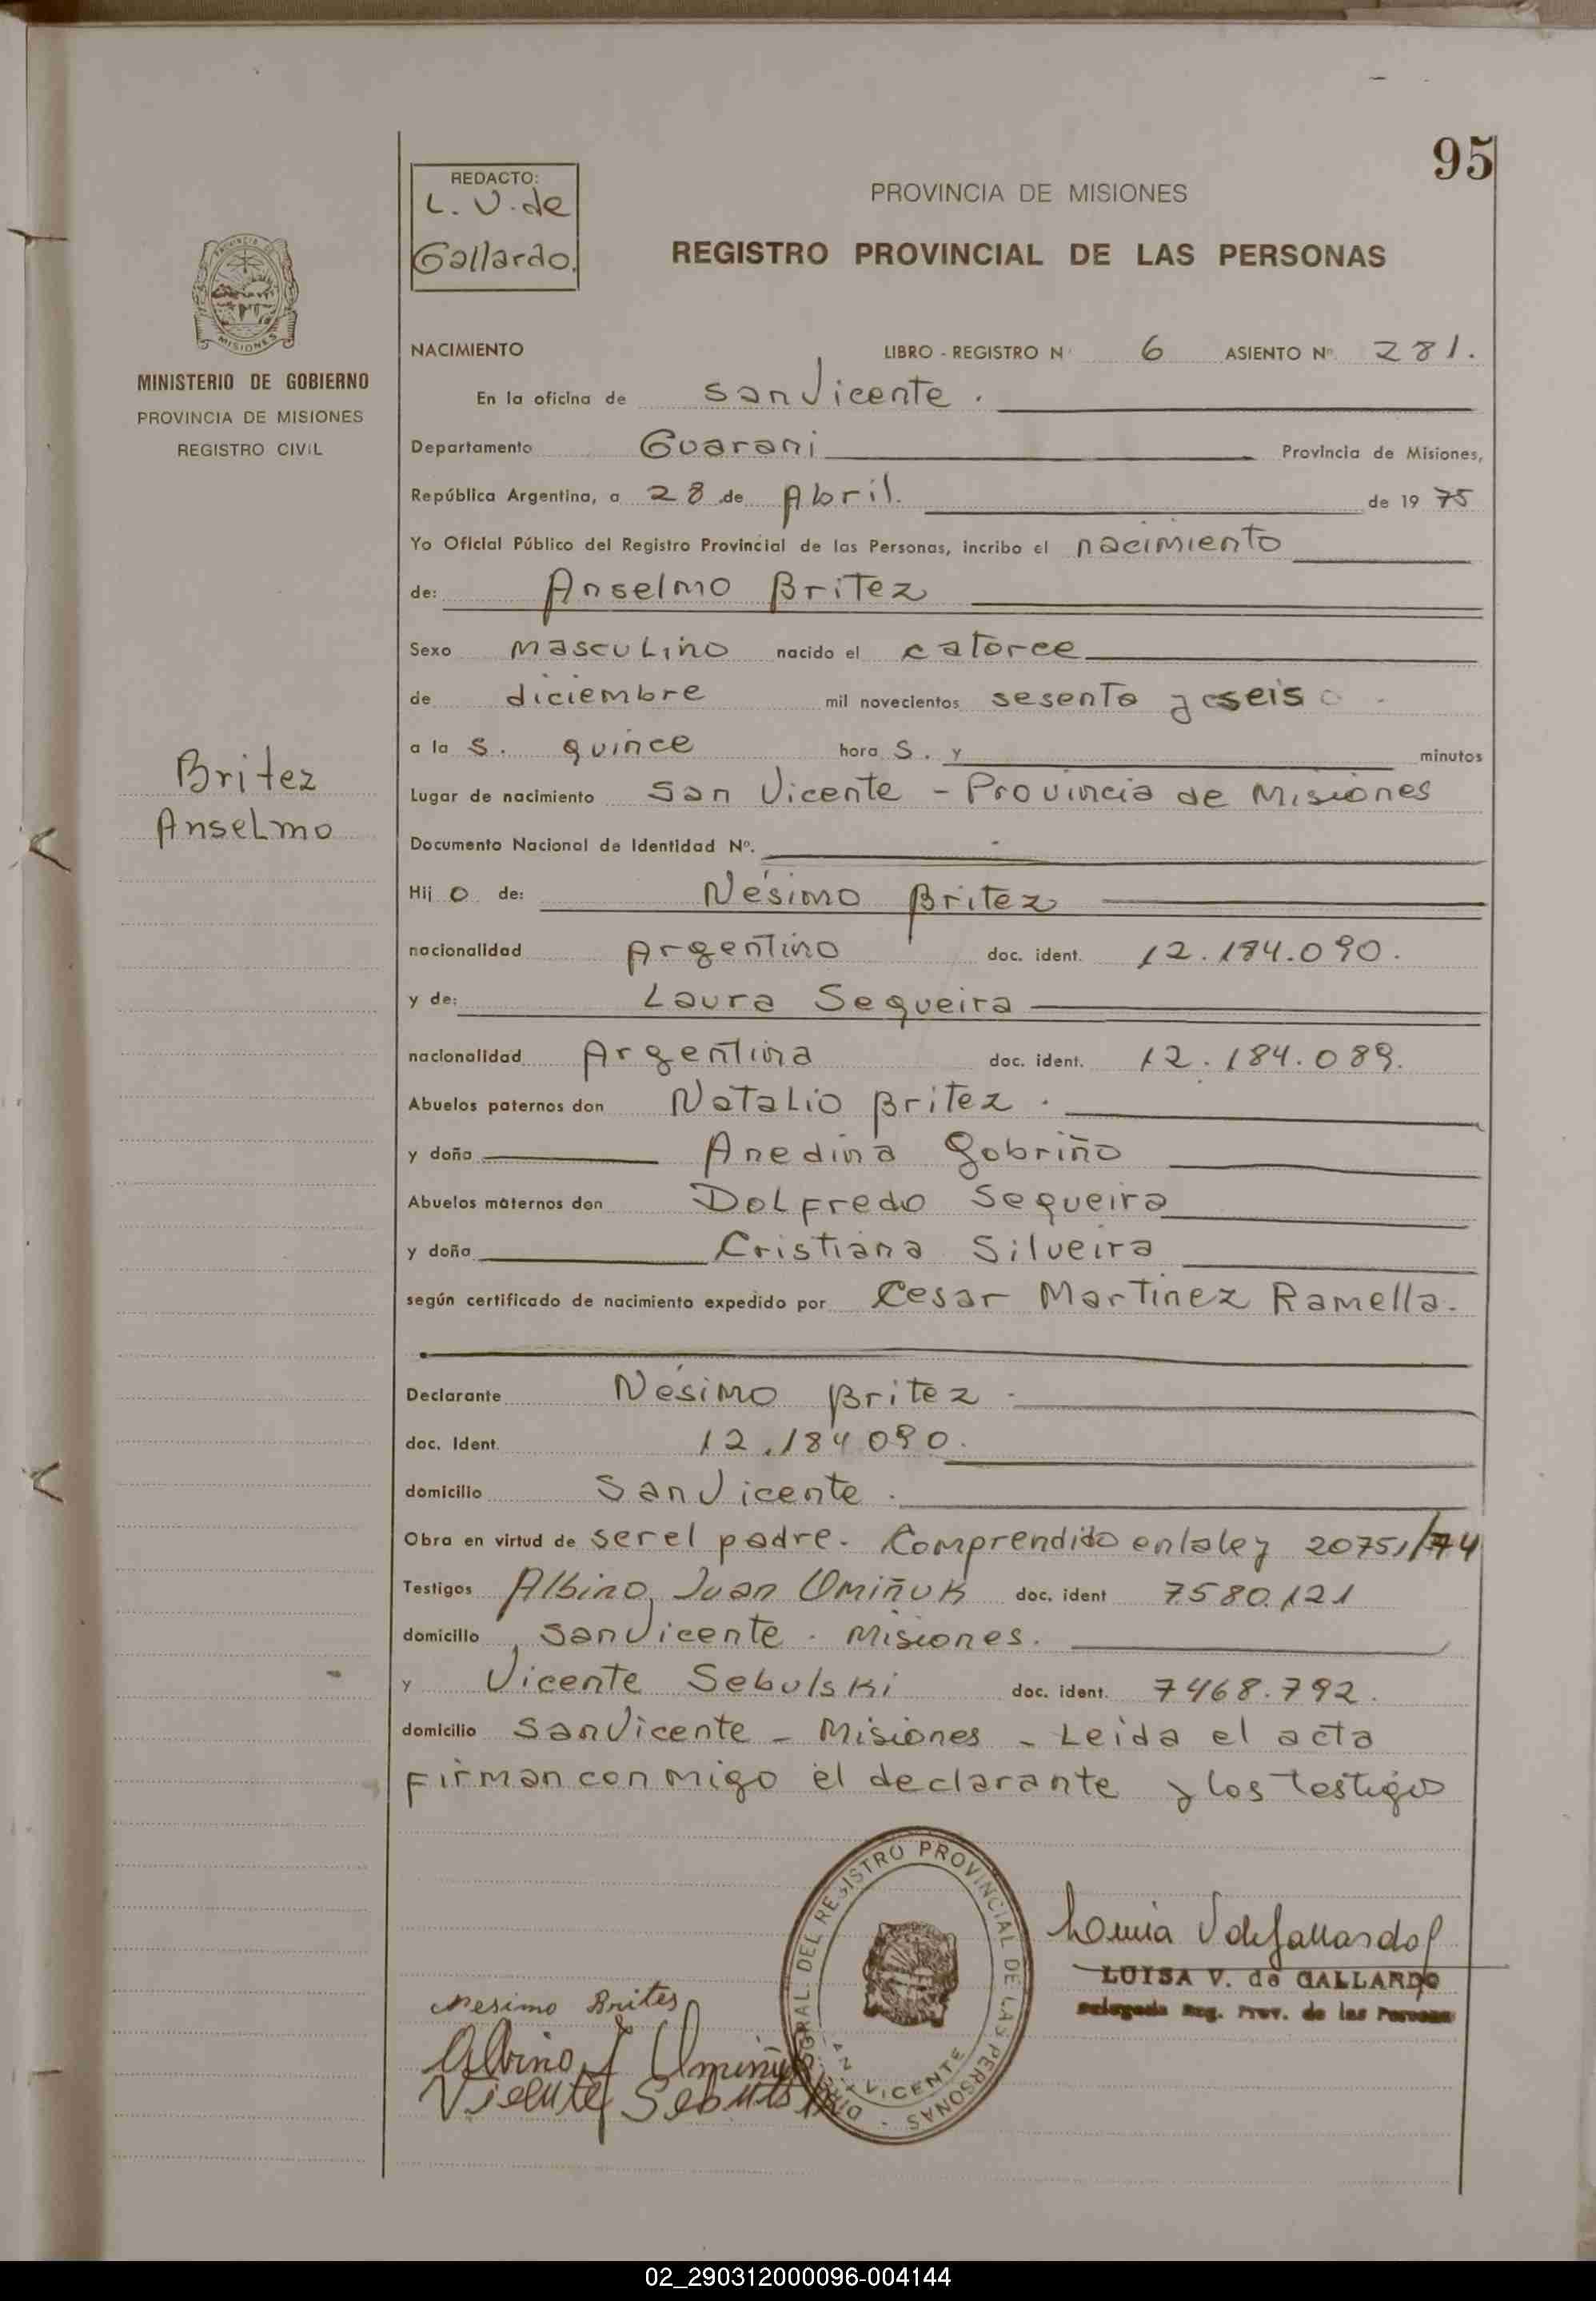 95
REDACTO:
L. V. de
Gallardo.
PROVINCIA DE MISIONES
REGISTRO PROVINCIAL DE LAS PERSONAS
MISIONES
MINISTERIO DE GOBIERNO
PROVINCIA DE MISIONES
REGISTRO CIVIL
NACIMIENTO LIBRO - REGISTRO Nº 6 ASIENTO Nº 281.
En la oficina de San Vicente.
Departamento Guarani Provincia de Misiones,
República Argentina, a 28 de Abril. de 1975
Yo Oficial Público del Registro Provincial de las Personas, incribo el nacimiento
de: Anselmo Britez
Sexo masculino nacido el catorce
de diciembre mil novecientos sesenta y seis
a la s. quince hora s. y minutos
Britez
Anselmo
Lugar de nacimiento San Vicente - Provincia de Misiones
Documento Nacional de Identidad Nº.
Hij o de: Nésimo Britez
nacionalidad Argentino doc. ident. 12.184.090.
y de: Laura Sequeira
nacionalidad Argentina doc. ident. 12.184.089.
Abuelos paternos don Natalio Britez.
y doña Anedina Gobriño
Abuelos maternos don Dolfredo Sequeira
y doña Cristiana Silveira
según certificado de nacimiento expedido por Cesar Martinez Ramella.
Declarante Nésimo Britez
doc. Ident. 12.184.090.
domicilio San Vicente.
Obra en virtud de ser el padre. Comprendido en la ley 20751/74
Testigos Albino Juan Umiñuk doc. ident 7580.121
domicilio San Vicente. Misiones.
y Vicente Sebulski doc. ident. 7468.792.
domicilio San Vicente - Misiones - Leida el acta
firman conmigo el declarante y los testigos
REGISTRO PROVINCIAL DE LAS PERSONAS
VICENTE
Nesimo Brites
Albino J Umiñuk
Vicente Sebulski
Louisa V de Gallardo
LUISA V. de GALLARDO
Delegada Reg. Prov. de las Personas
02_290312000096-004144